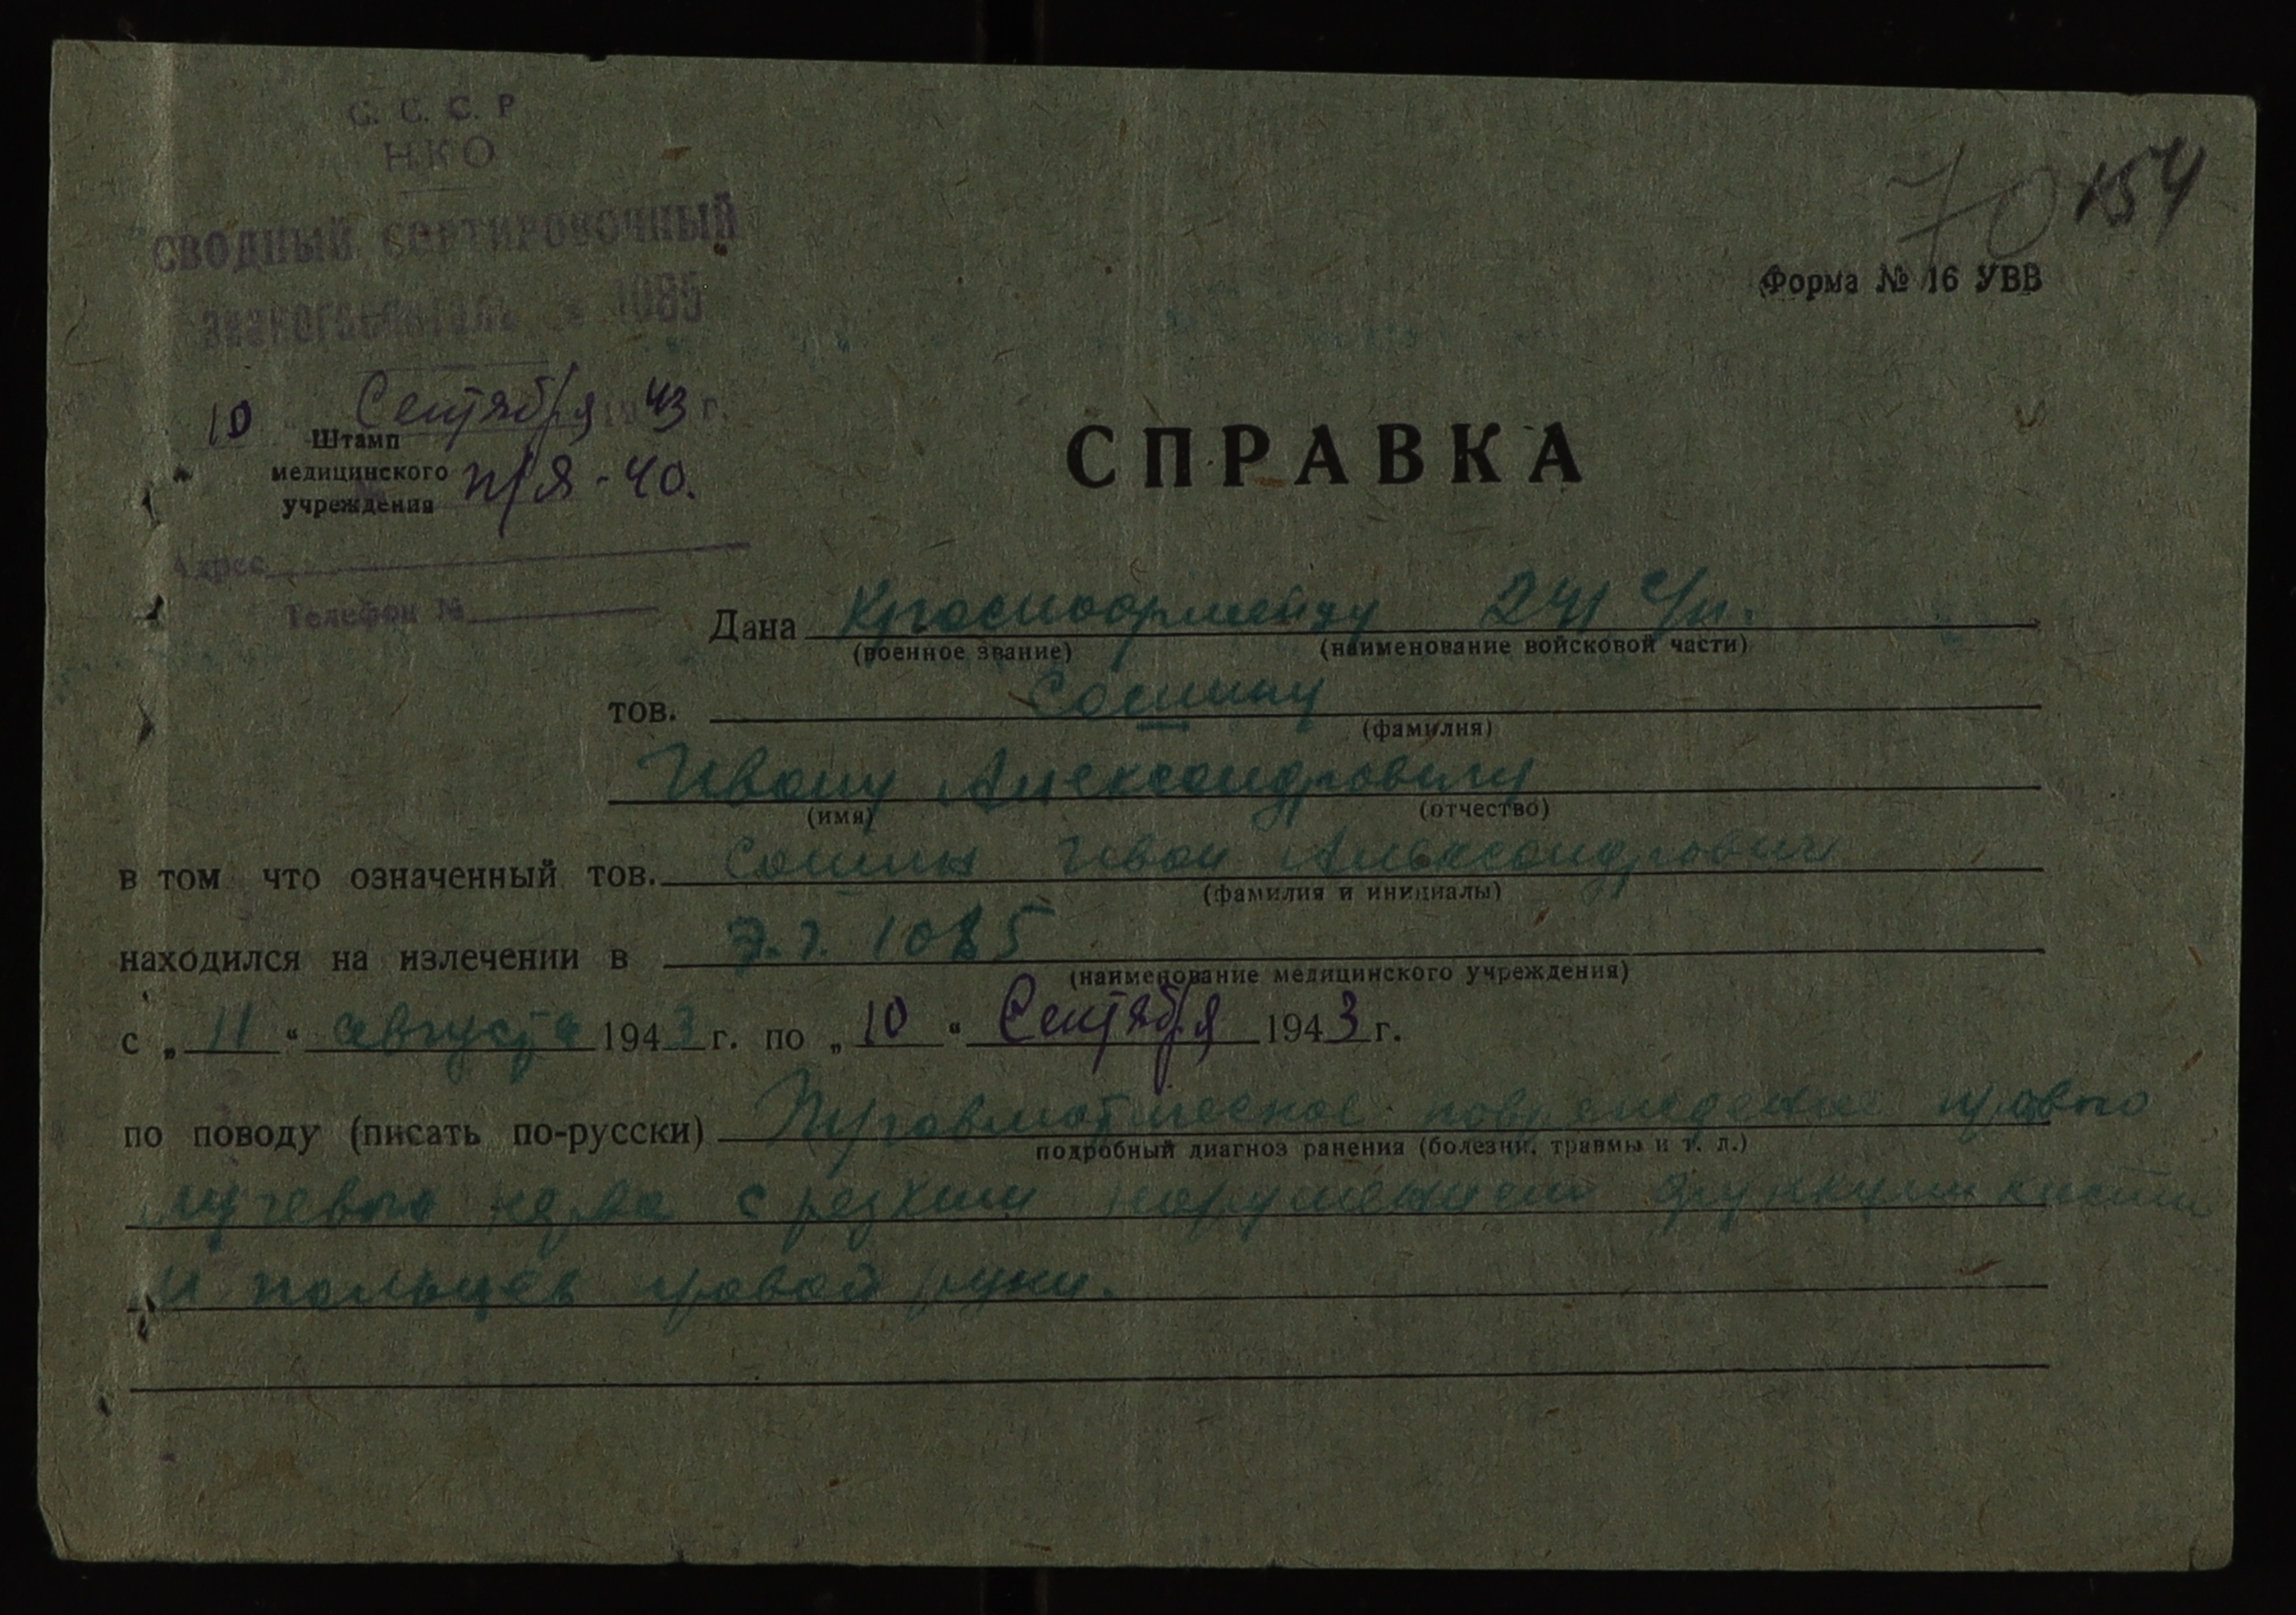 С. С. С. Р
НКО
СВОДНЫЙ СОРТИРОВОЧНЫЙ
эвакогоспиталь № 1085
70 154
Форма № 16 УВВ
10 Сентября 1943 г.
Штамп
медицинского
учреждения
п/я - 40.
Адрес
Телефон №
СПРАВКА
Дана Красноармейцу 241 с/п.
(военное звание) (наименование войсковой части)
тов. Сошину
(фамилия)
Ивану Александровичу
(имя) (отчество)
в том что означенный тов. Сошин Иван Александрович
(фамилия и инициалы)
находился на излечении в Э.Г. 1085
(наименование медицинского учреждения)
с „ 11 “ августа 1943 г. по „ 10 “ Сентября 1943 г.
по поводу (писать по-русски) Травматическое повреждение правого
подробный диагноз ранения (болезни, травмы и т. д.)
лучевого нерва с резким нарушением функции кисти
и пальцев правой руки.